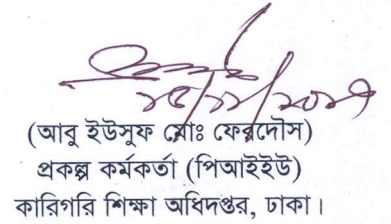 (আবু ইউসুফ মোঃ ফেরদৌস)
প্রকল্প কর্মকর্তা (পিআইইউ)
কারিগরি শিক্ষা অধিদপ্তর, ঢাকা।